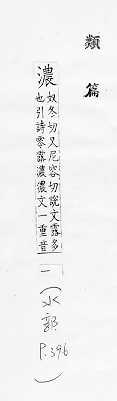 類篇
濃
奴冬切又尼容切說文露多
也引詩零露濃濃文一重音
一
(水部
P.396)